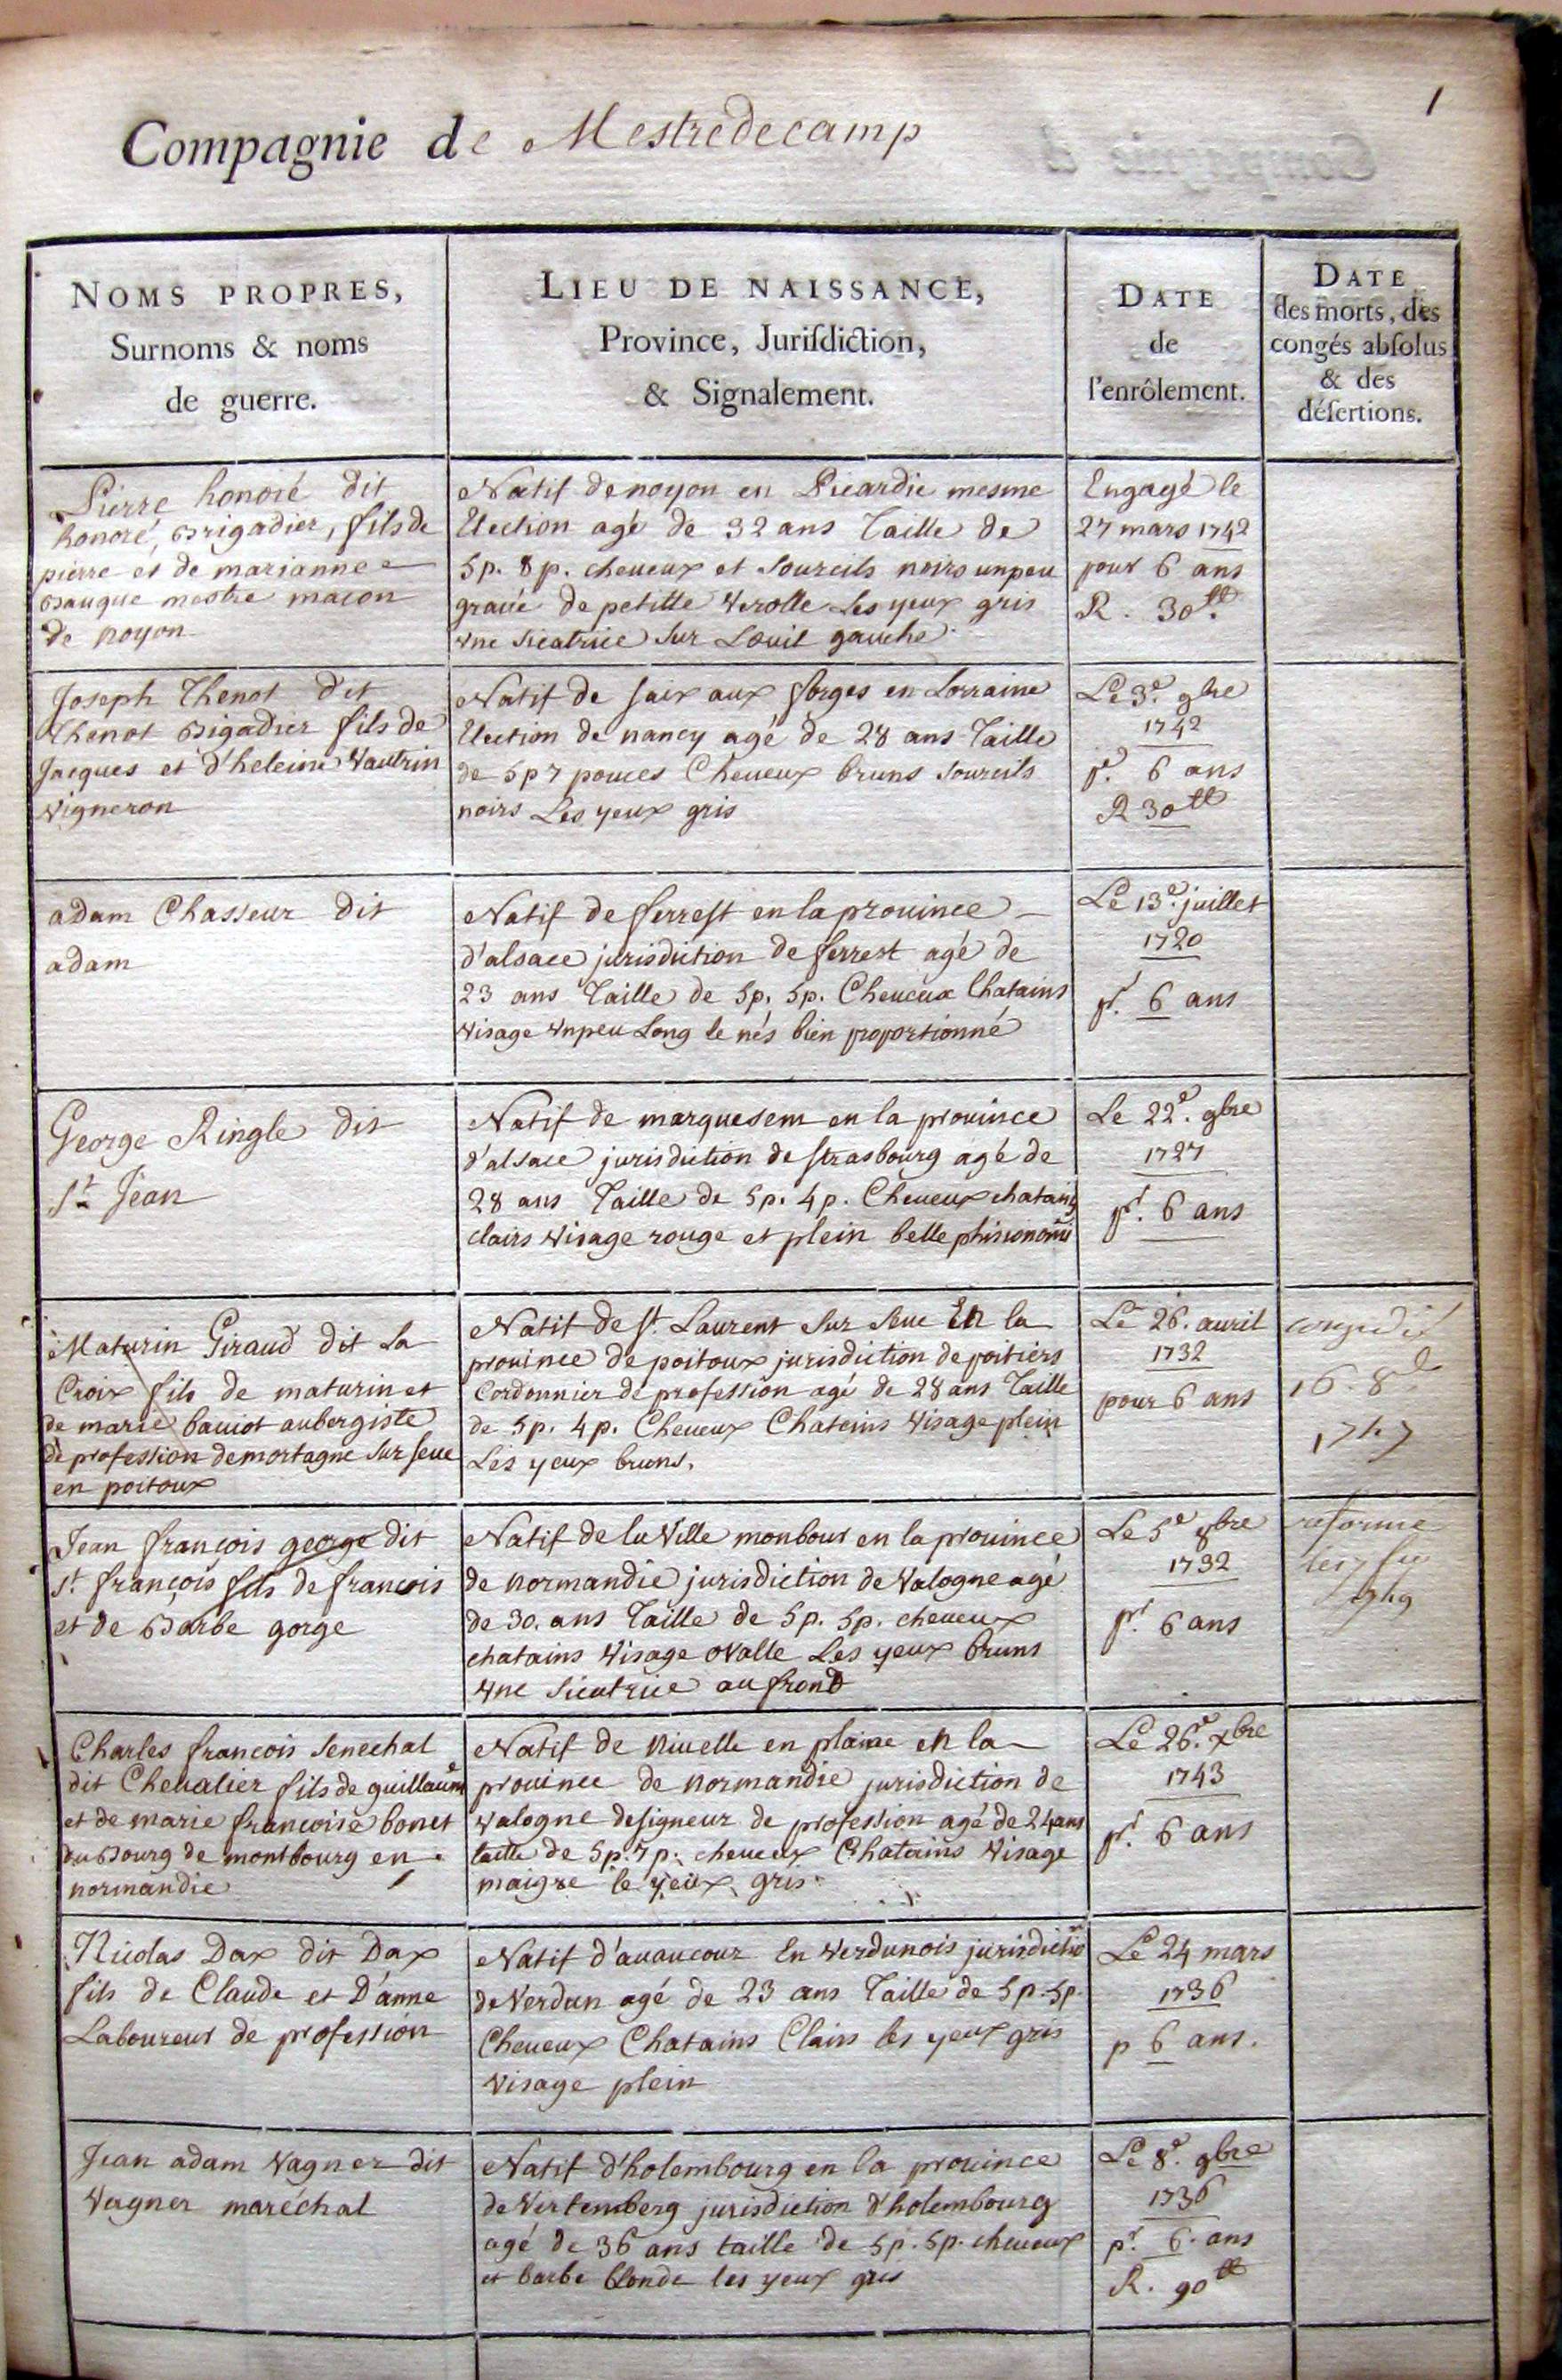 1
Compagnie de Mestredecamp
NOMS PROPRES,
Surnoms & noms
de guerre.
LIEU DE NAISSANCE,
Province, Jurisdiction,
& Signalement.
DATE
de
l'enrôlement.
DATE
des morts, des
congés absolus
& des
désertions.
Pierre honoré dit
honoré, Brigadier, fils de
pierre et de marianne
Bauque mestre macon
de noyon
Natif de noyon en Picardie mesme
Election agé de 32 ans Taille de
5p. 8p. cheueux et Sourcils noirs unpeu
graué de petitte Verolle Les yeux gris
Vne Sicatrice Sur Lœuil gauche
Engagé le
27 mars 1742
pour 6 ans
R. 30tt
Joseph Thenot dit
Thenot Brigadier fils de
Jacques et d'heleine Vautrin
Vigneron
Natif de saix aux forges en Lorraine
Election de nancy agé de 28 ans Taille
de 5p 7 pouces Cheueux bruns Sourcils
noirs Les yeux gris
Le 3e. 9bre
1742
pr. 6 ans
R 30tt
adam Chasseur dit
adam
Natif de ferrest en la prouince
d'alsace jurisdiction de ferrest agé de
23 ans Taille de 5p. 5p. Cheueux Chatains
Visage Vnpeu Long le nés bien proportionné
Le 13e. juillet
1720
pr. 6 ans
George Ringle dit
St Jean
Natif de marquesem en la prouince
d'alsace jurisdiction de strasbourg agé de
28 ans Taille de 5p. 4p. Cheueux chatains
clairs Visage rouge et plein belle phisionomi
Le 22e. 9bre
1727
pr. 6 ans
Maturin Giraud dit La
Croix fils de maturin et
de marie bauiot aubergiste
de profession demortagne Sur seue
en poitoux
Natif de st. Laurent Sur Seue En la
prouince de poitoux jurisdiction de poitiers
Cordonnier de profession agé de 28 ans Taille
de 5p. 4p. Cheueux Chateins Visage plein
Les yeux bruns.
Le 26. auril
1732
pour 6 ans
congedié
16. 8
1747
Jean françois george dit
st. françois fils de francois
et de Barbe gorge
Natif de la Ville monbour en la prouince
de normandie jurisdiction de Valogne agé
de 30. ans Taille de 5p. 5p. cheueux
chatains Visage oValle Les yeux bruns
Vne Sicatrice au frond
Le 5e 8bre
1732
pr. 6 ans
reforme
1749
Charles francois Senechal
dit Chevalier fils de guillaume
et de marie francoise bonet
du Bourg de montbourg en
normandie
Natif de niuelle en plaine en la
prouince de normandie jurisdiction de
Valogne designeur de profession agé de 24 ans
taille de 5p. 7p. cheueux Chatains Visage
maigre le yeux gris.
Le 26e. xbre
1743
pr. 6 ans
Nicolas Dax dit Dax
fils de Claude et D'anne
Laboureur de profession
Natif d'auaucour En Verdunois jurisdiction
de Verdun agé de 23 ans Taille de 5p. 5p.
Cheueux Chatains Clairs les yeux gris
Visage plein
Le 24 mars
1736
p 6 ans.
Jean adam Vagner dit
Vagner maréchal
Natif d'holembourg en la prouince
de Vertemberg jurisdiction d'holembourg
agé de 36 ans taille de 5p. 5p. cheueux
et barbe blonde les yeux gris
Le 8e. 9bre
1736
pr. 6. ans
R. 90tt